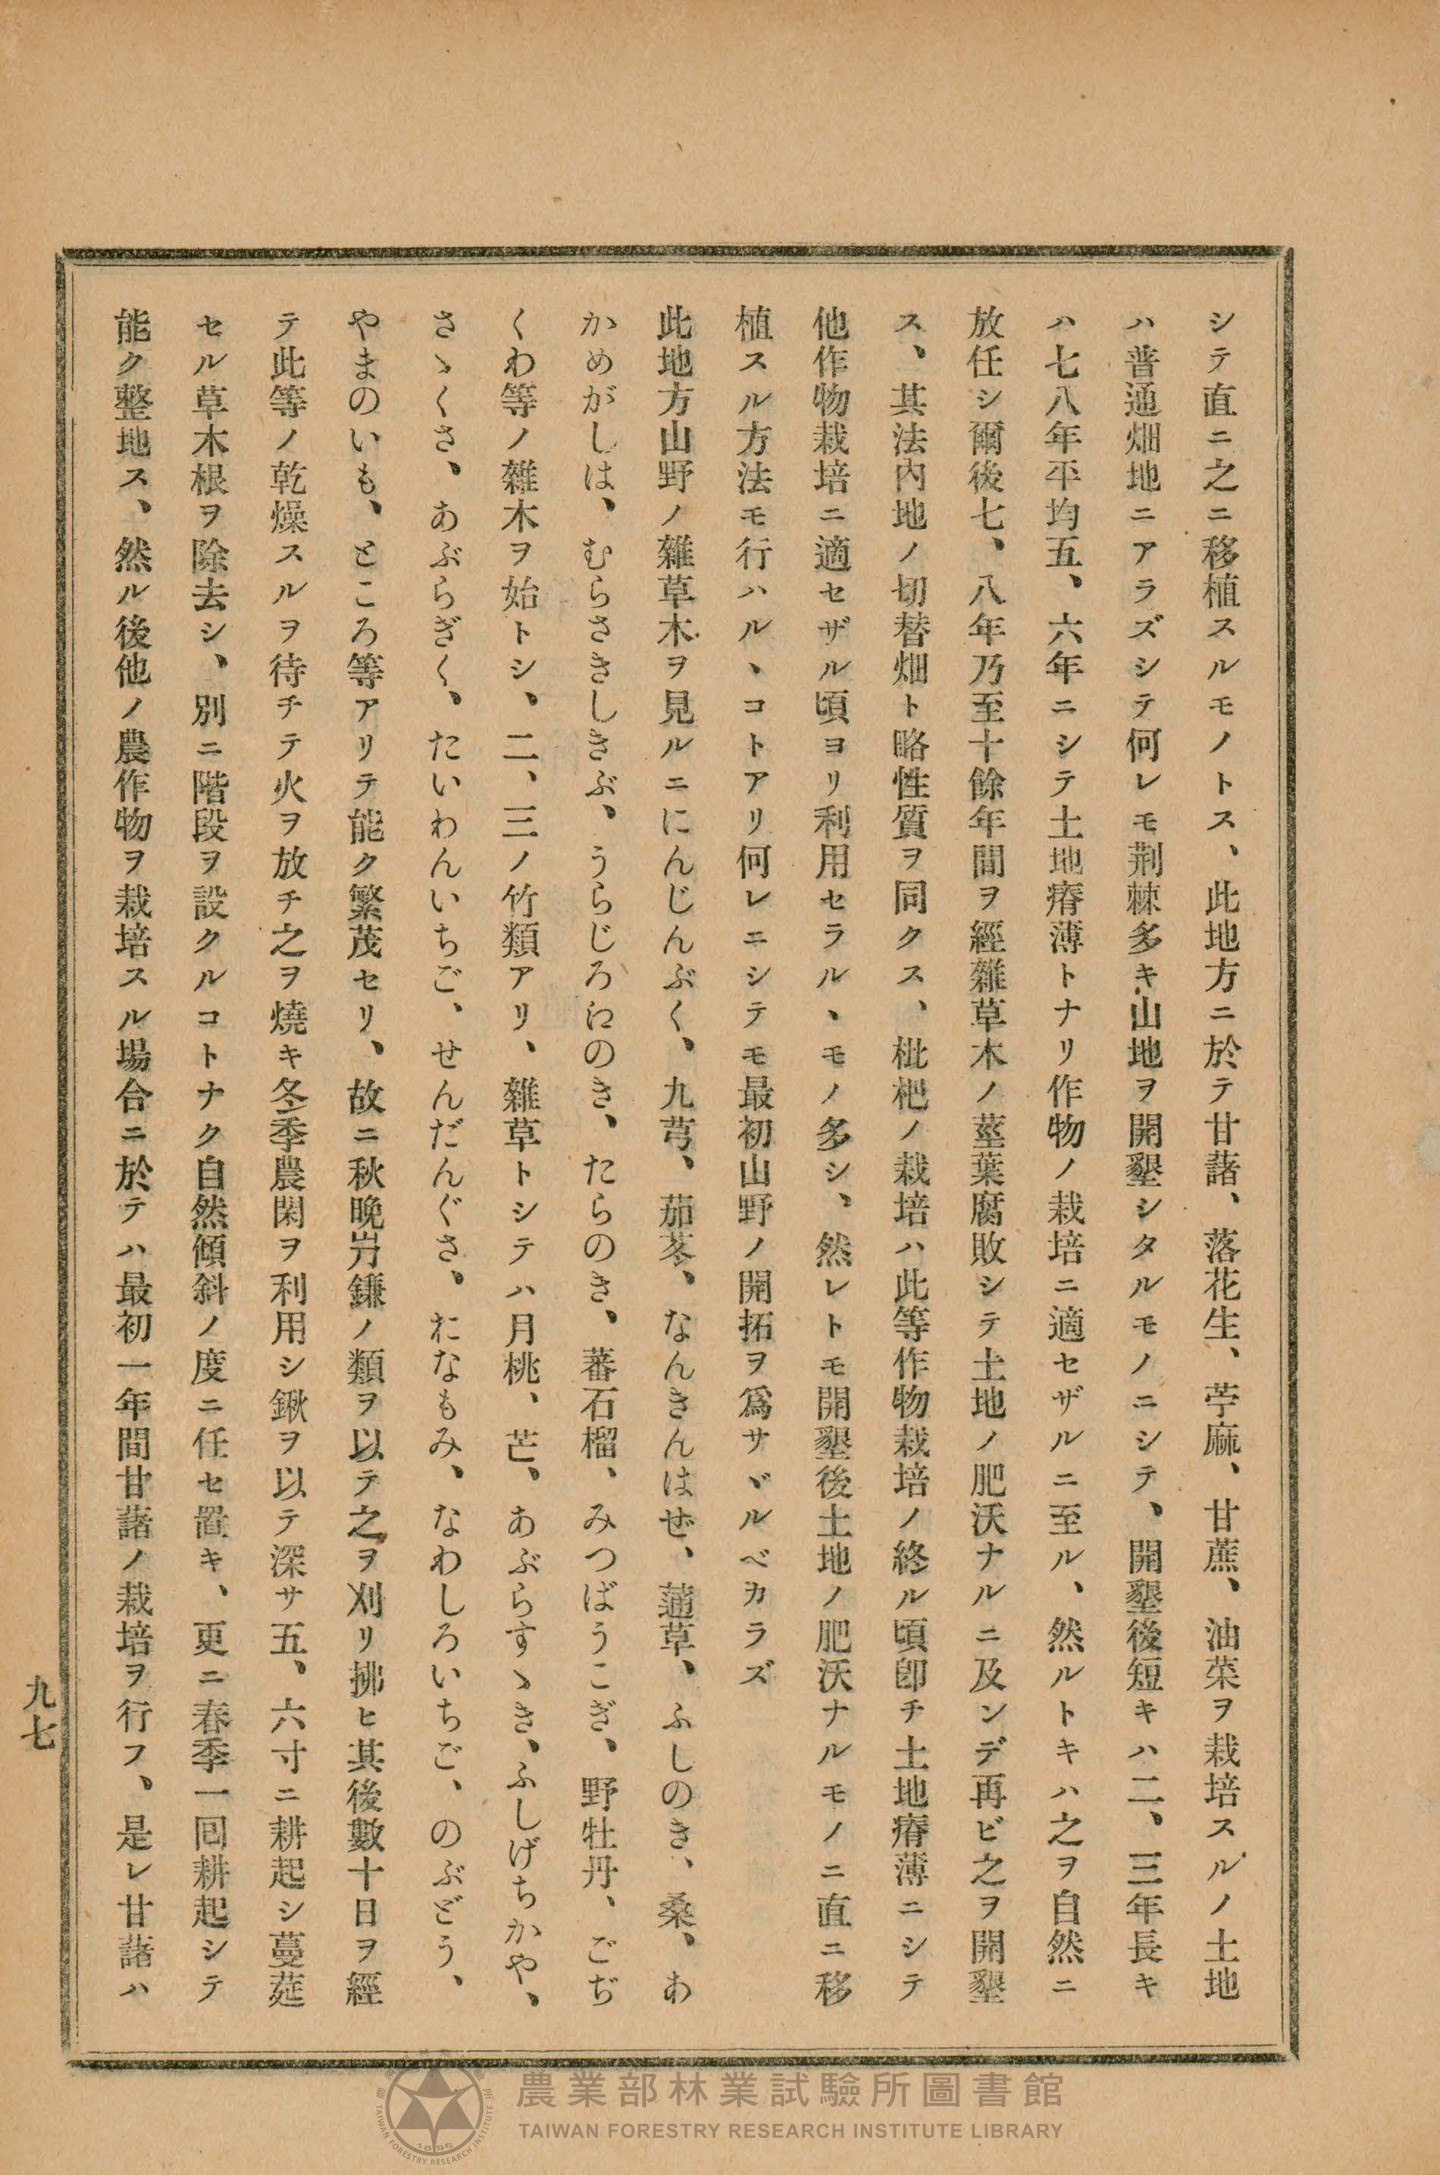 シテ直ニ之ニ移植スルモノトス、此地方ニ於テ甘藷、落花生、苧麻、甘蔗、油菜ヲ栽培スルノ土地
ハ普通畑地ニアラズシテ何レモ荆棘多キ山地ヲ開墾シタルモノニシテ、開墾後短キハ二、三年長キ
ハ七八年平均五、六年ニシテ土地瘠薄トナリ作物ノ栽培ニ適セザルニ至ル、然ルトキハ之ヲ自然ニ
放任シ爾後七、八年乃至十餘年間ヲ經雜草木ノ莖葉腐敗シテ土地ノ肥沃ナルニ及ンデ再ビ之ヲ開墾
ス、其法內地ノ切替畑ト略性質ヲ同クス、枇杷ノ栽培ハ此等作物栽培ノ終ル頃卽チ土地瘠薄ニシテ
他作物栽培ニ適セザル頃ヨリ利用セラルヽモノ多シ、然レトモ開墾後土地ノ肥沃ナルモノニ直ニ移
植スル方法モ行ハルヽコトアリ何レニシテモ最初山野ノ開拓ヲ爲サヾルベカラズ
此地方山野ノ雜草木ヲ見ルニにんじんぶく、九芎、茄苳、なんきんはぜ、蓪草、ふしのき、桑、あ
かめがしは、むらさきしきぶ、うらじろねのき、たらのき、蕃石榴、みつばうこぎ、野牡丹、ごぢ
くわ等ノ雜木ヲ始トシ、二、三ノ竹類アリ、雜草トシテハ月桃、芒、あぶらすゝき、ふしげちかや、
さゝくさ、あぶらぎく、たいわんいちご、せんだんぐさ、おなもみ、なわしろいちご、のぶどう、
やまのいも、ところ等アリテ能ク繁茂セリ、故ニ秋晩屶鎌ノ類ヲ以テ之ヲ刈リ拂ヒ其後數十日ヲ經
テ此等ノ乾燥スルヲ待チテ火ヲ放チ之ヲ燒キ冬季農閑ヲ利用シ鍬ヲ以テ深サ五、六寸ニ耕起シ蔓莚
セル草木根ヲ除去シ、別ニ階段ヲ設クルコトナク自然傾斜ノ度ニ任セ置キ、更ニ春季一回耕起シテ
能ク整地ス、然ル後他ノ農作物ヲ栽培スル場合ニ於テハ最初一年間甘藷ノ栽培ヲ行フ、是レ甘藷ハ
九七
農業部林業試驗所圖書館
TAIWAN FORESTRY RESEARCH INSTITUTE LIBRARY